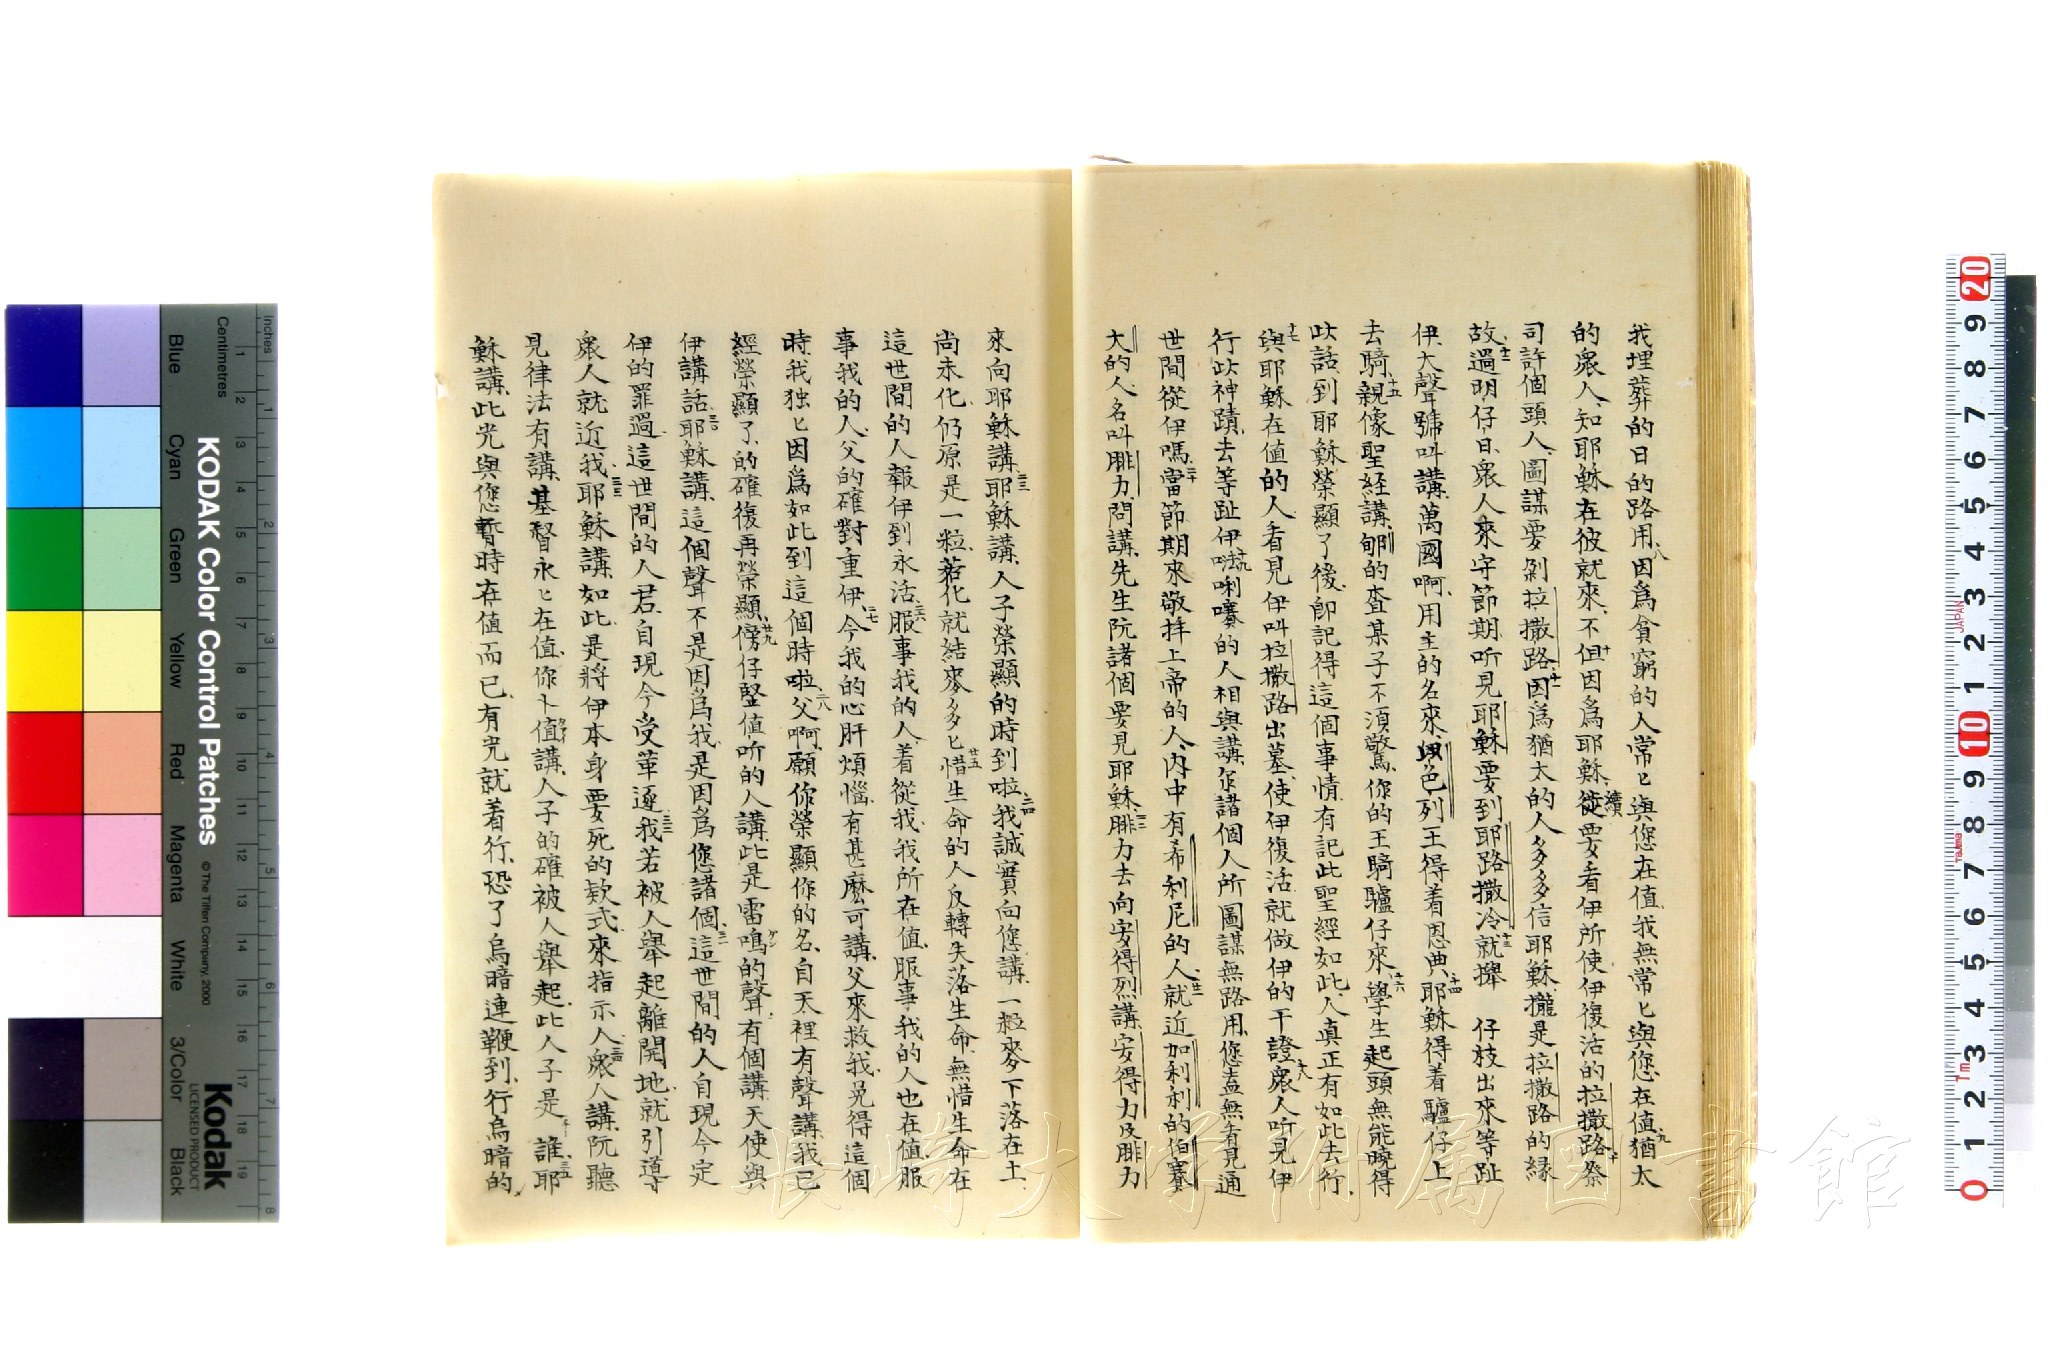 我埋葬的日的路用八因爲貪窮的人常ヒ與您在值我無常ヒ與您在值九猶太
的衆人知耶穌在彼就來不但因爲耶穌續要看伊所使伊復活的拉撒路十祭
司許個頭人圖謀要剝拉撒路十一因爲猶太的人多多信耶穌攏是拉撒路的縁
故十二過明仔日衆人來守節期听見耶穌要到耶路撒冷十三就攑 仔枝出來等趾
伊大聲號叫講萬國啊用主的名來以色列王得着恩典十四耶穌得着驢仔上
去騎十五親像聖経講郇的查某子不須驚你的王騎驢仔來十六學生起頭無能曉得
此話到耶穌榮顯了後卽記得這個事情有記此聖經如此人真正有如此去行
十七與耶穌在值的人看見伊叫拉撒路出墓使伊復活就做伊的干證十八衆人听見伊
行此神蹟去等趾伊十九㗼唎㘔的人相與講您諸個人所圖謀無路用您盍無看見通
世間從伊嗎二十當節期來敬拜上帝的人內中有希利尼的人二一就近加利利的伯賽
大的人名叫腓力問講先生阮諸個要見耶穌二二腓力去向安得烈講安得力及腓力
來向耶穌講二三耶穌講人子榮顯的時到啦二四我誠實向您講一粒麥下落在土
尚未化仍原是一粒若化就結麥多ヒ廿五惜生命的人反轉失落生命無惜生命在
這世間的人報伊到永活二六服事我的人着從我我所在值服事我的人也在值服
事我的人父的確對重伊二七今我的心肝煩惱有甚麽可講父來救我免得這個
時我独ヒ因爲如此到這個時啦二八父啊願你榮顯你的名自天裡有聲講我已
經榮顯了的確復再榮顯廿九傍仔竪值听的人講此是雷鳴的聲有個講天使與
伊講話三十耶穌講這個聲不是因爲我是因爲您諸個三一這世間的人自現今定
伊的罪過這世間的人君自現今受革逐三二我若被人舉起離開地就引導
衆人就近我三三耶穌講如此是將伊本身要死的欵式來指示人三四衆人講阮聽
見律法有講基督永ヒ在值你卜值講人子的確被人舉起此人子是 誰三五耶
穌講此光與您暫時在值而已有光就着行恐了烏暗連鞭到行烏暗的
長崎大学附属図書館
KODAK Color Control Patches
© The Tiffen Company, 2000
Kodak
LICENSED PRODUCT
Inches
Centimetres
Blue Cyan Green Yellow Red Magenta White 3/Color Black
JAPAN
Tajima
1m